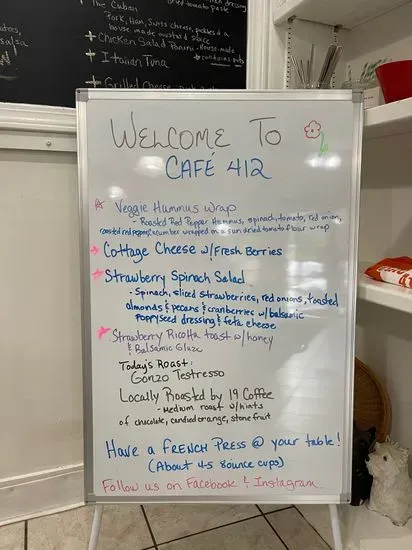 The Cuban
Pork, Ham, Swiss cheese, pickles on a
house made mustard sauce
+ Chicken Salad Panini - House-made
* contains nuts
+ Italian Tuna
+ Grilled Cheese
WELCOME TO
CAFÉ 412
Veggie Hummus Wrap
- Roasted Red Pepper Hummus, spinach, tomato, red onion,
roasted red pepper, cucumber wrapped on a sun dried tomato flour wrap
Cottage Cheese w/Fresh Berries
Strawberry Spinach Salad
- Spinach, sliced strawberries, red onions, toasted
almonds & pecans & cranberries w/balsamic
poppyseed dressing & feta cheese
Strawberry Ricotta toast w/honey
& Balsamic Glaze
Today's Roast:
Gonzo Testresso
Locally Roasted by 19 Coffee
- Medium roast w/hints
of chocolate, candied orange, stone fruit
Have a FRENCH PRESS @ your table!
(About 4-5 8ounce cups)
Follow us on Facebook & Instagram